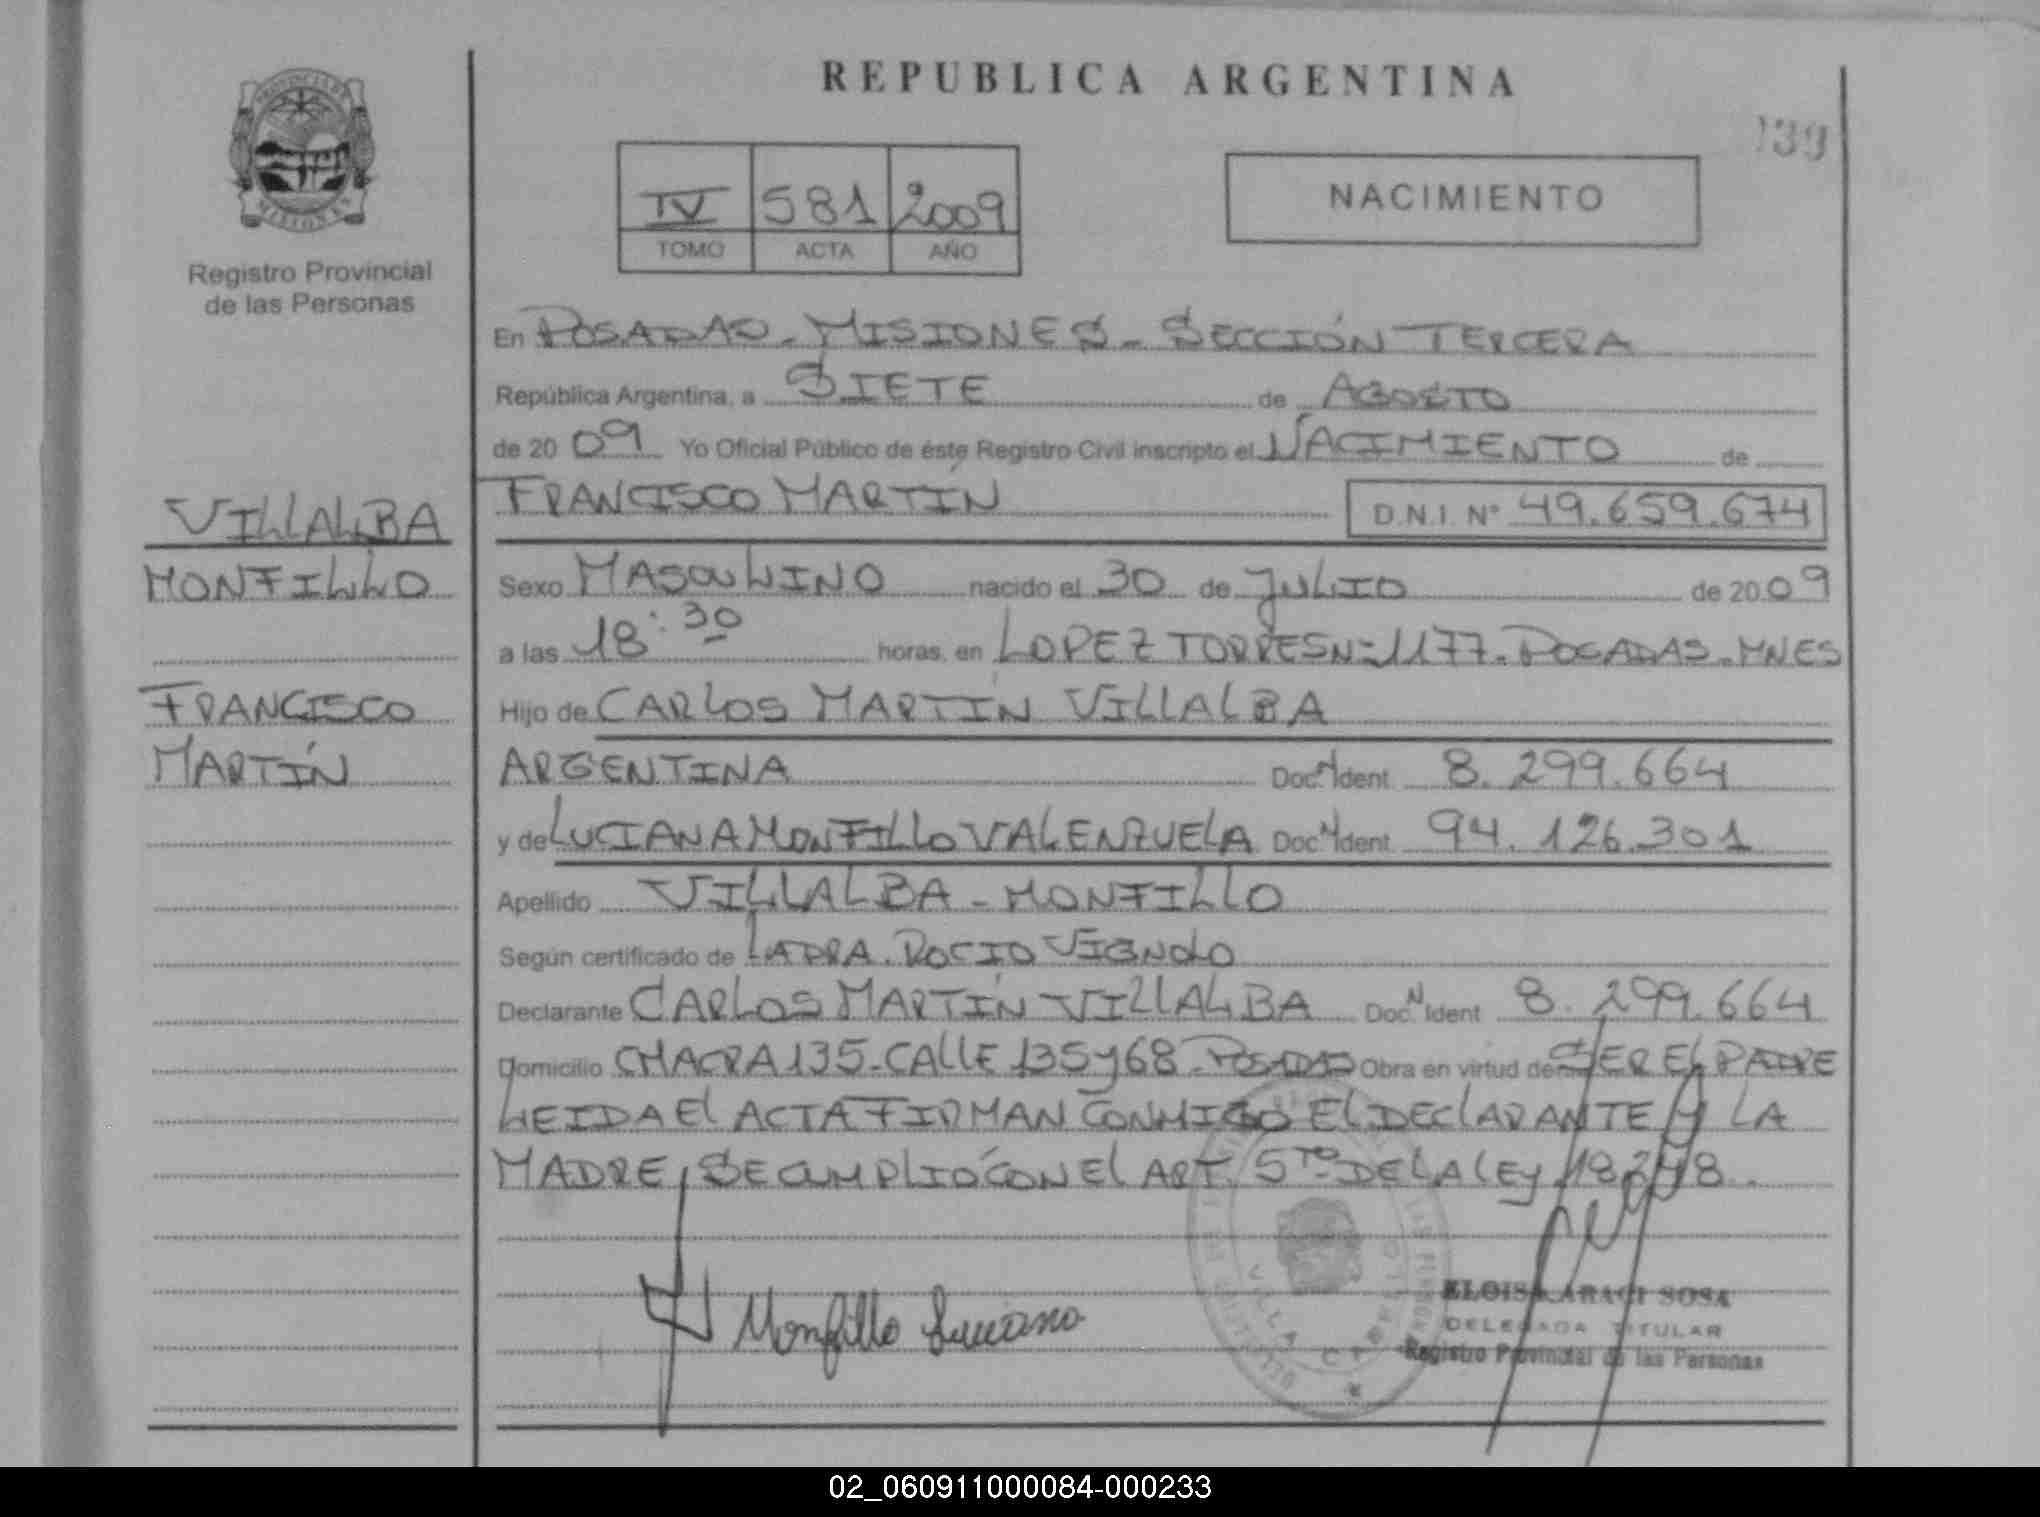 REPUBLICA ARGENTINA
139
PROVINCIA DE
MISIONES
Registro Provincial
de las Personas
IV 581 2009
TOMO ACTA AÑO
NACIMIENTO
En POSADAS - MISIONES - SECCIÓN TERCERA
República Argentina, a SIETE de AGOSTO
de 20 09 Yo Oficial Público de éste Registro Civil inscripto el NACIMIENTO de
FRANCISCO MARTÍN D.N.I. Nº 49.659.674
VILLALBA
MONFILLO
FRANCISCO
MARTÍN
Sexo MASCULINO nacido el 30 de JULIO de 20 09
a las 18:30 horas, en LOPEZ TORRES Nº 1177 - POSADAS - MNES
Hijo de CARLOS MARTÍN VILLALBA
ARGENTINA Doc. N Ident. 8.299.664
y de LUCIANA MONFILLO VALENZUELA Doc. N Ident. 94.126.301
Apellido VILLALBA - MONFILLO
Según certificado de LA DRA. ROCIO VIGNOLO
Declarante CARLOS MARTÍN VILLALBA Doc. N Ident. 8.299.664
Domicilio CHACRA 135 - CALLE 135 y 68 - POSADAS Obra en virtud de SER EL PADRE
LEIDA El ACTA FIRMAN CONMIGO EL DECLARANTE y LA
MADRE, SE CUMPLIÓ CON El ART. 5TO DE LA LEy 18248.
Monfillo Luciana
ELOISA ARACI SOSA
DELEGADA TITULAR
Registro Provincial de las Personas
02_060911000084-000233